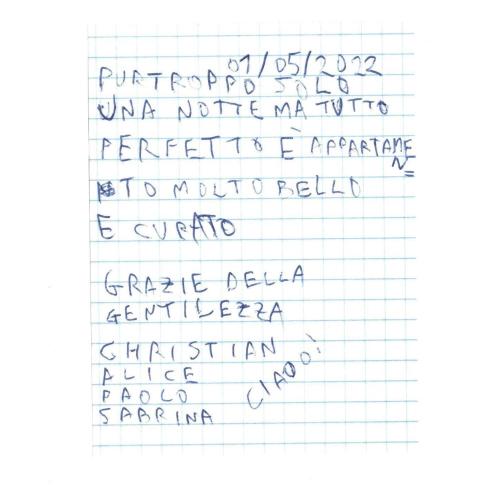 01/05/2022
PURTROPPO SOLO
UNA NOTTE MA TUTTO
PERFETTO È APPARTAME
N=
TO MOLTO BELLO
E CURATO
GRAZIE DELLA
GENTILEZZA
CHRISTIAN
ALICE
PAOLO
SABRINA
CIAOO!